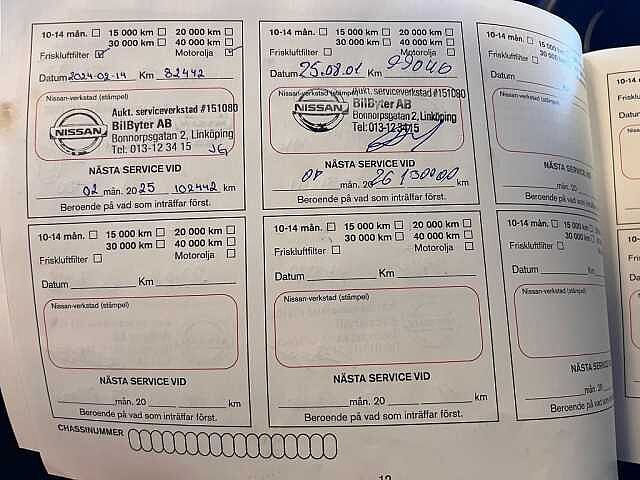 10-14 mån. 15 000 km 20 000 km
30 000 km 40 000 km
Friskluftfilter Motorolja
Datum 2024-02-14 Km 82442
Nissan-verkstad (stämpel)
Aukt. serviceverkstad #151080
NISSAN
BilByter AB
Bonnorpsgatan 2, Linköping
Tel: 013-12 34 15 JG
NÄSTA SERVICE VID
02 mån. 2025 102442 km
Beroende på vad som inträffar först.
10-14 mån. 15 000 km 20 000 km
30 000 km 40 000 km
Friskluftfilter Motorolja
Datum 25.08.01 Km 99046
Nissan-verkstad (stämpel)
Aukt. serviceverkstad #151080
NISSAN
BilByter AB
Bonnorpsgatan 2, Linköping
Tel: 013-12 34 15
NÄSTA SERVICE VID
mån. 2026 130000 km
Beroende på vad som inträffar först.
10-14 mån. 15 000
30 000
Friskluftfilter
Datum
Nissan-verkstad (stämpel)
NÄSTA SERVICE
mån. 20
Beroende på vad som
10-14 mån. 15 000 km 20 000 km
30 000 km 40 000 km
Friskluftfilter Motorolja
Datum Km
Nissan-verkstad (stämpel)
NÄSTA SERVICE VID
mån. 20 km
Beroende på vad som inträffar först.
10-14 mån. 15 000 km 20 000 km
30 000 km 40 000 km
Friskluftfilter Motorolja
Datum Km
Nissan-verkstad (stämpel)
NÄSTA SERVICE VID
mån. 20 km
Beroende på vad som inträffar först.
10-14 mån.
Friskluftfilter
Datum
Nissan-verkstad (stämpel)
NÄSTA
mån. 20
Beroende på vad som
CHASSINUMMER